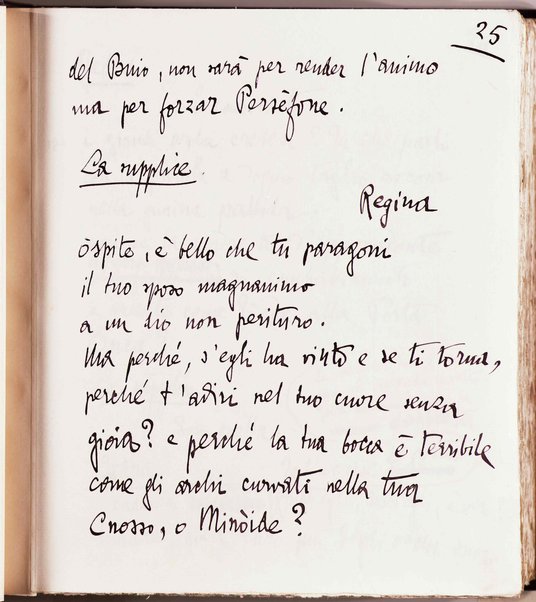 25
del Buio, non sarà per render l'animo
ma per forzar Persèfone.
La supplice.
Regina
òspite, è bello che tu paragoni
il tuo sposo magnanimo
a un dio non perituro.
Ma perché, s'egli ha vinto e se ti torna,
perché t'adiri nel tuo cuore senza
gioia? e perché la tua bocca è terribile
come gli archi curvati nella tua
Cnosso, o Minòide?